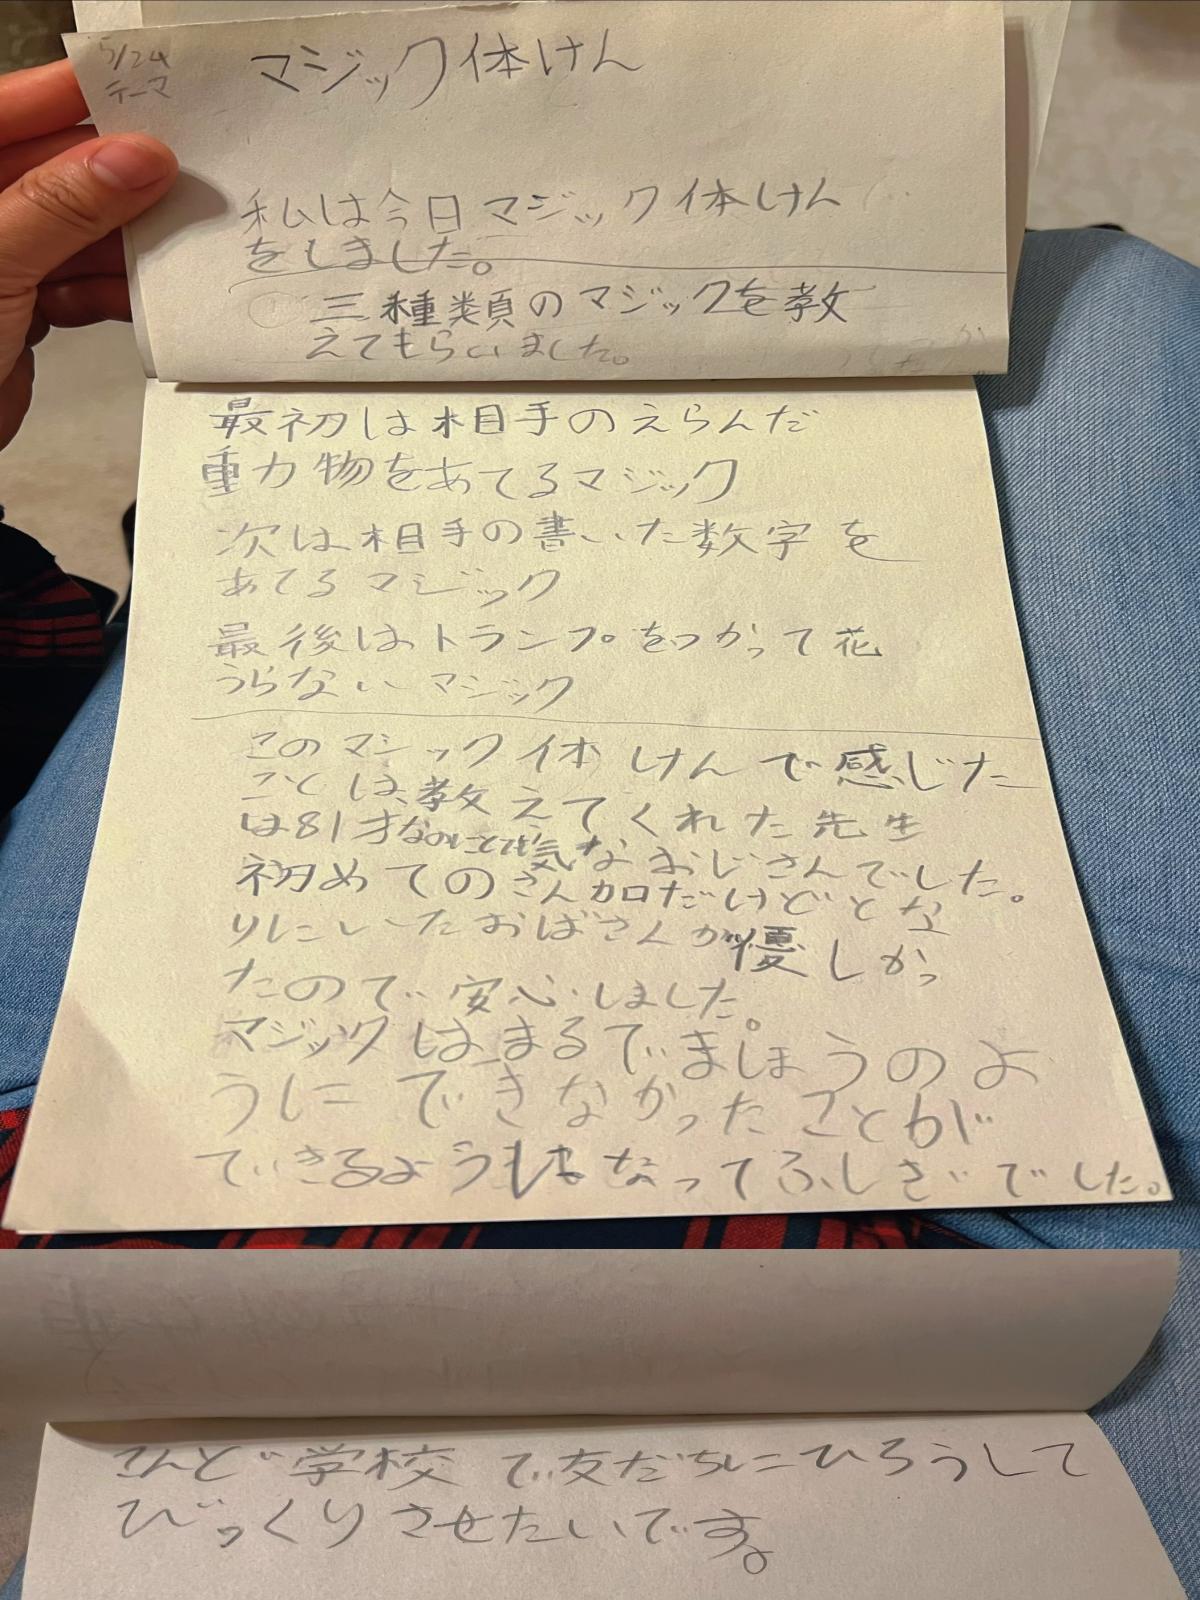 5/24
テーマ
マジック体けん
私は今日マジック体けん
をしました。
三種類のマジックを教
えてもらいました。
最初は相手のえらんだ
動物をあてるマジック
次は相手の書いた数字を
あてるマジック
最後はトランプをつかって花
うらないマジック
このマジック体けんで感じた
ことは、教えてくれた先生
は81才なのにとても元気なおじさんでした。
初めてのさん加だけどとな
りにいたおばさんが優しかっ
たので安心しました。
マジックはまるでまほうのよ
うにできなかったことが
できるようになってふしぎでした。
こんど学校で友だちにひろうして
びっくりさせたいです。